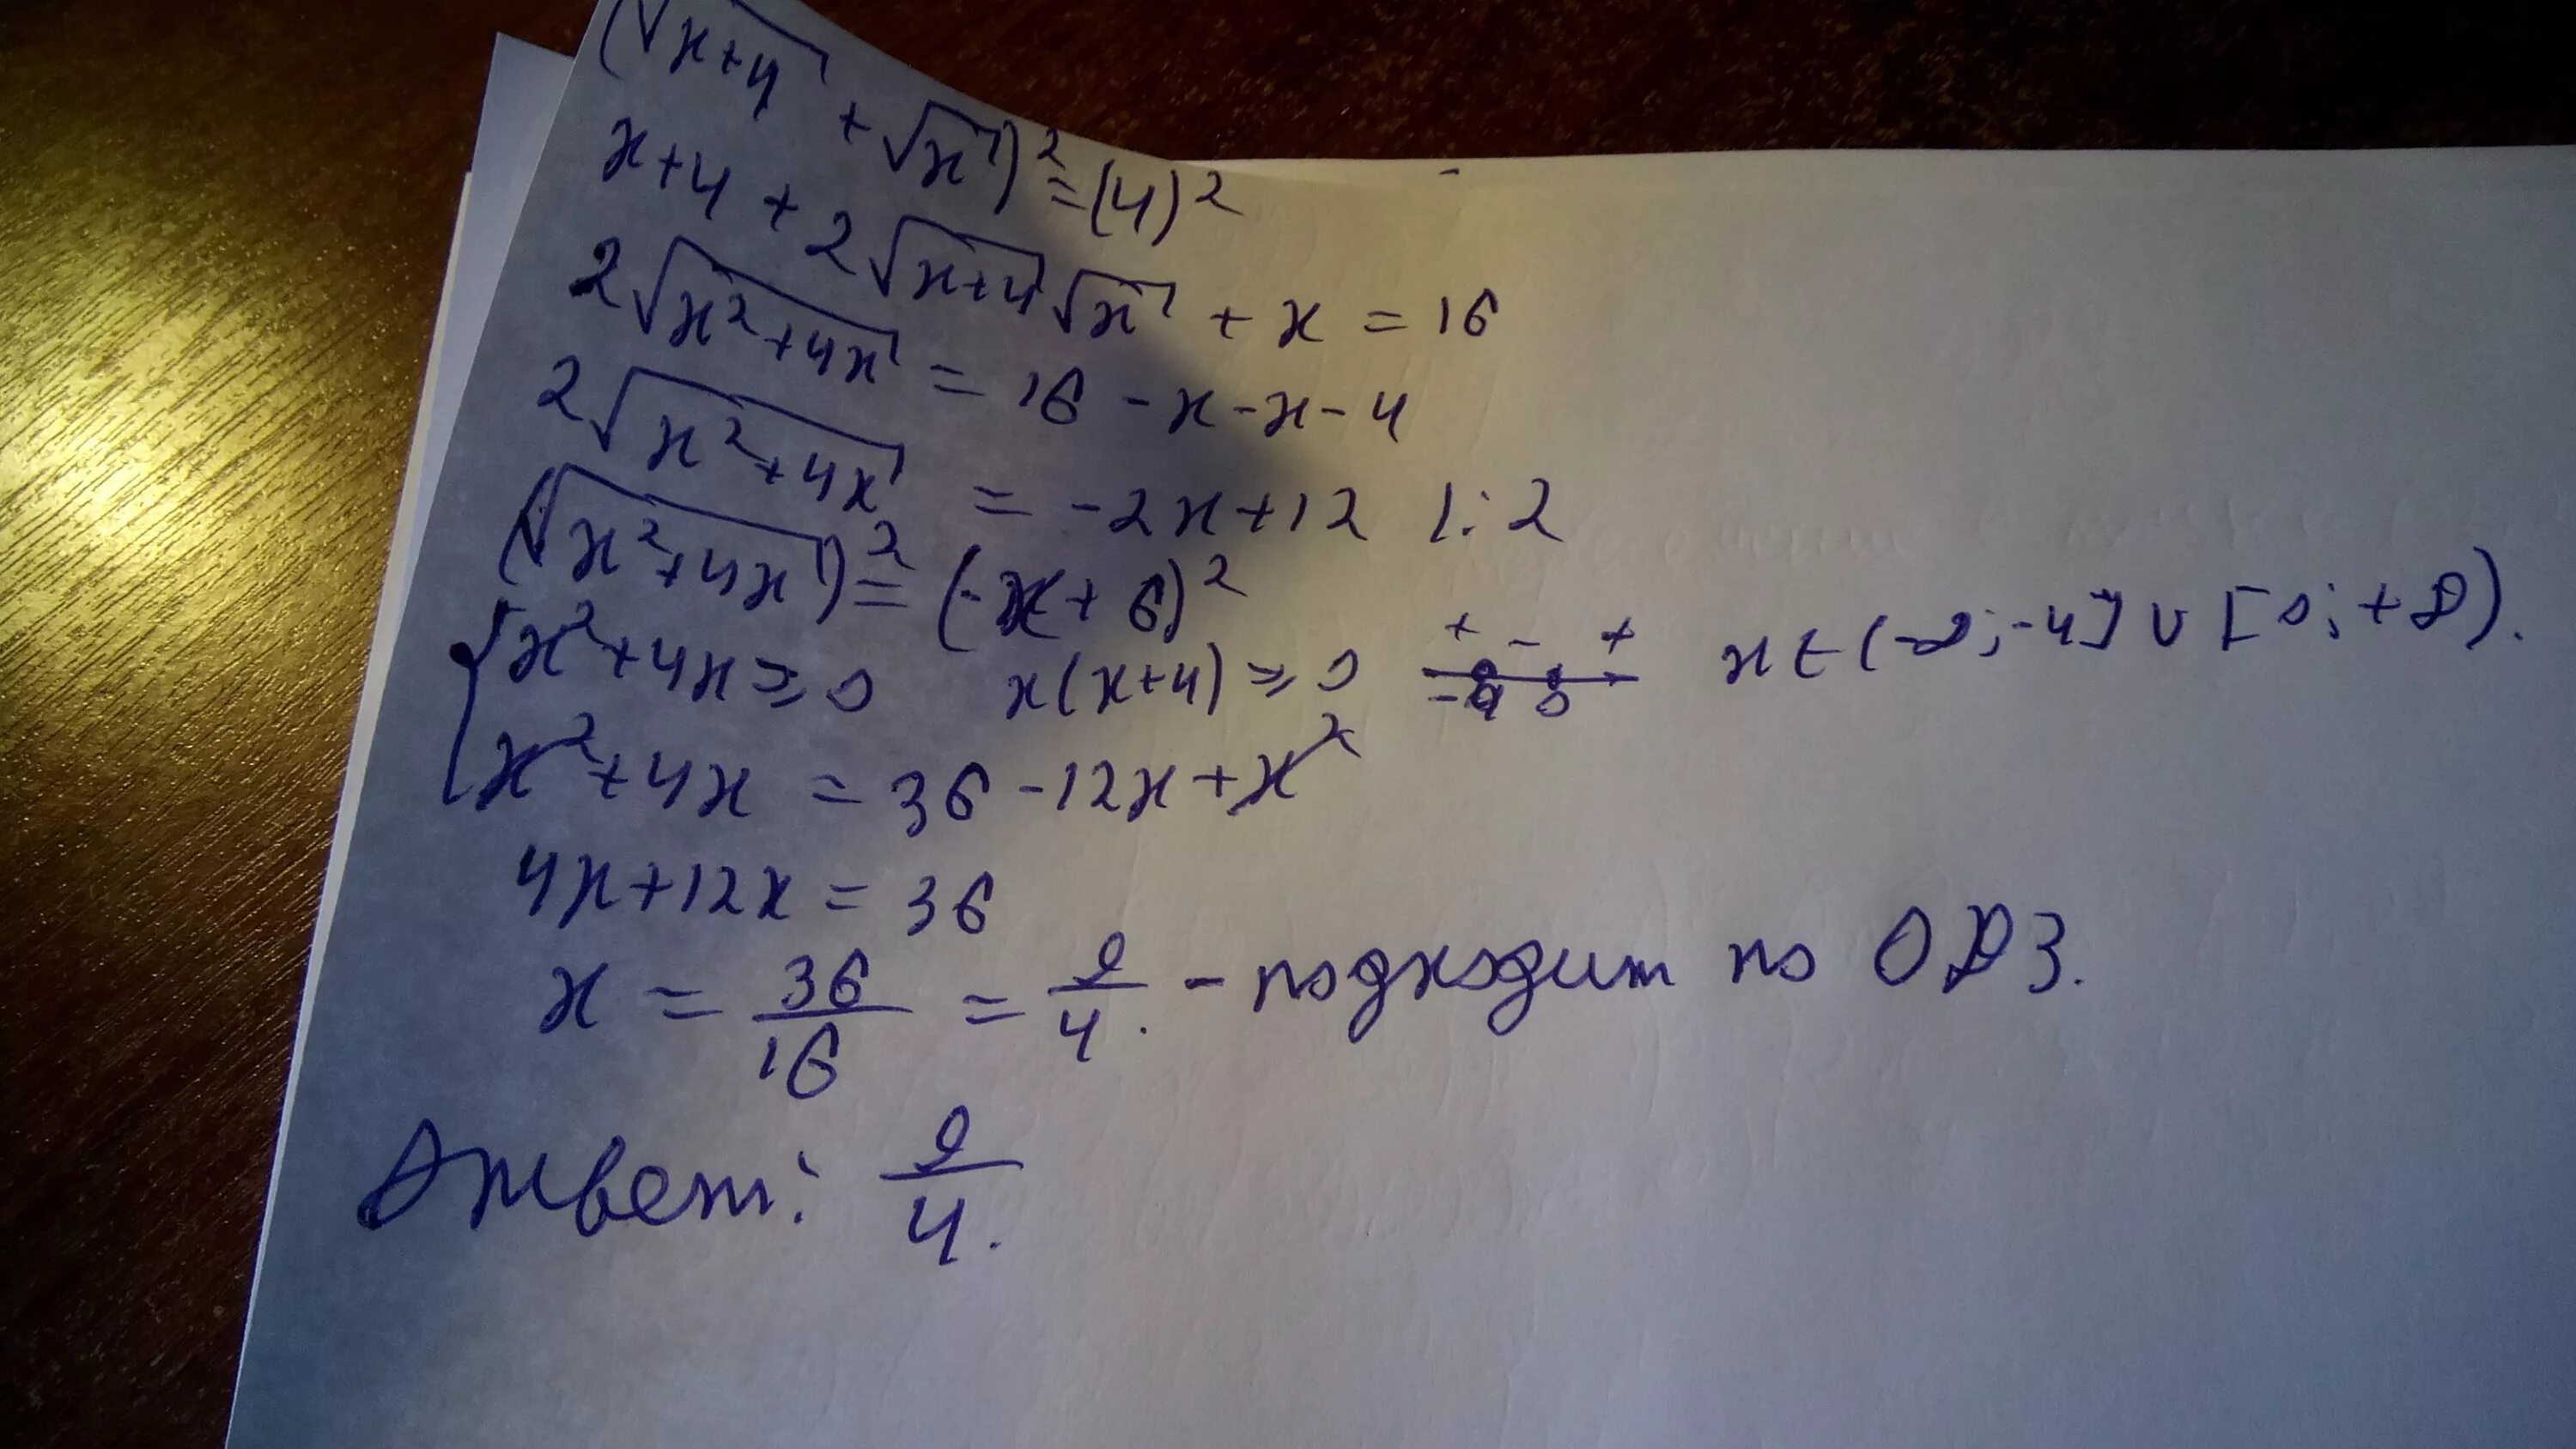 (√x+4 + √x)² = (4)²
x+4 + 2√x+4 √x + x = 16
2√x²+4x = 16 - x - x - 4
2√x²+4x = -2x+12 |:2
(√x²+4x)² = (-x+6)²
{ x²+4x ≥ 0 x(x+4) ≥ 0 + - + -4 0 x ∈ (-∞; -4] ∪ [0; +∞).
x²+4x = 36 - 12x + x²
4x+12x = 36
x = 36/16 = 9/4. - подходит по ОДЗ.
Ответ: 9/4.